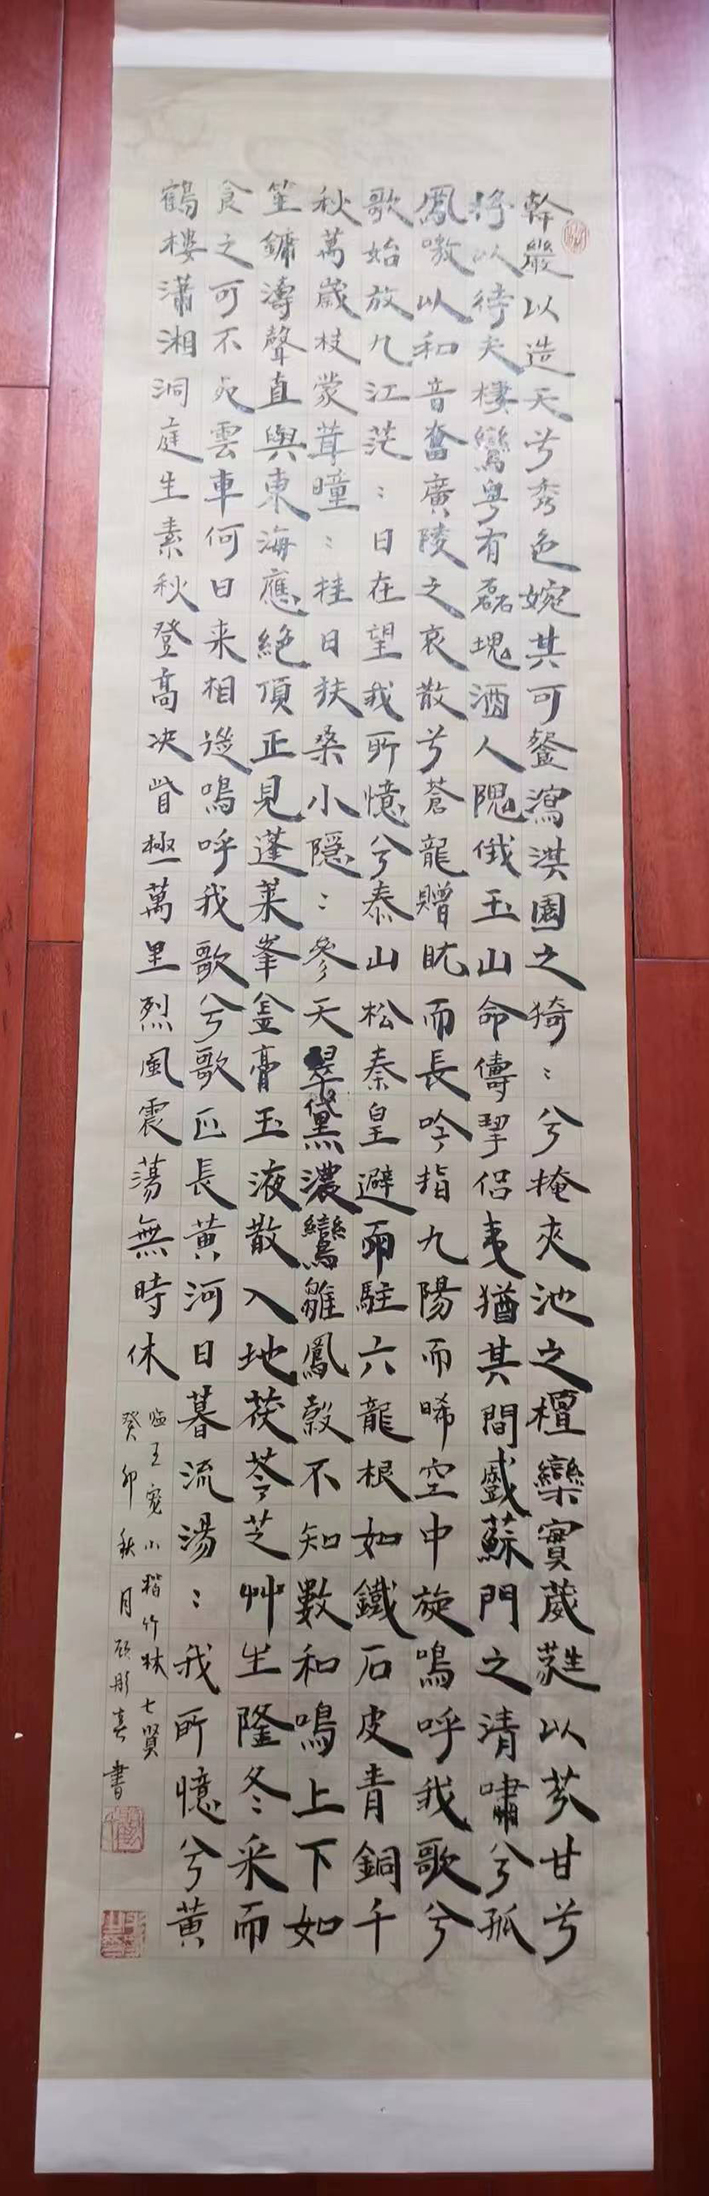 幹嚴以造天兮秀色婉其可餐瀉淇園之猗〻兮掩夾池之檀欒實葳蕤以芬甘兮
將以待夫棲鸞粵有磊塊酒人隗俄玉山命儔挐侶夷猶其間戲蘇門之清嘯兮孤
鳳嗷以和音奮廣陵之哀散兮蒼龍贈眈而長吟指九陽而晞空中旋嗚呼我歌兮
歌始放九江茫〻日在望我所憶兮泰山松秦皇避雨駐六龍根如鐵石皮青銅千
秋萬歲枝蒙茸曈〻挂日扶桑小隱〻參天翠黛濃鸞雛鳳鷇不知數和鳴上下如
笙鏞濤聲直與東海應絕頂正見蓬萊峯金膏玉液散入地茯苓芝艸生隆冬采而
食之可不死雲車何日来相逆嗚呼我歌兮歌正長黃河日暮流湯〻我所憶兮黃
鶴樓瀟湘洞庭生素秋登高决眥極萬里烈風震蕩無時休
臨王寵小楷竹林七賢
癸卯秋月 書